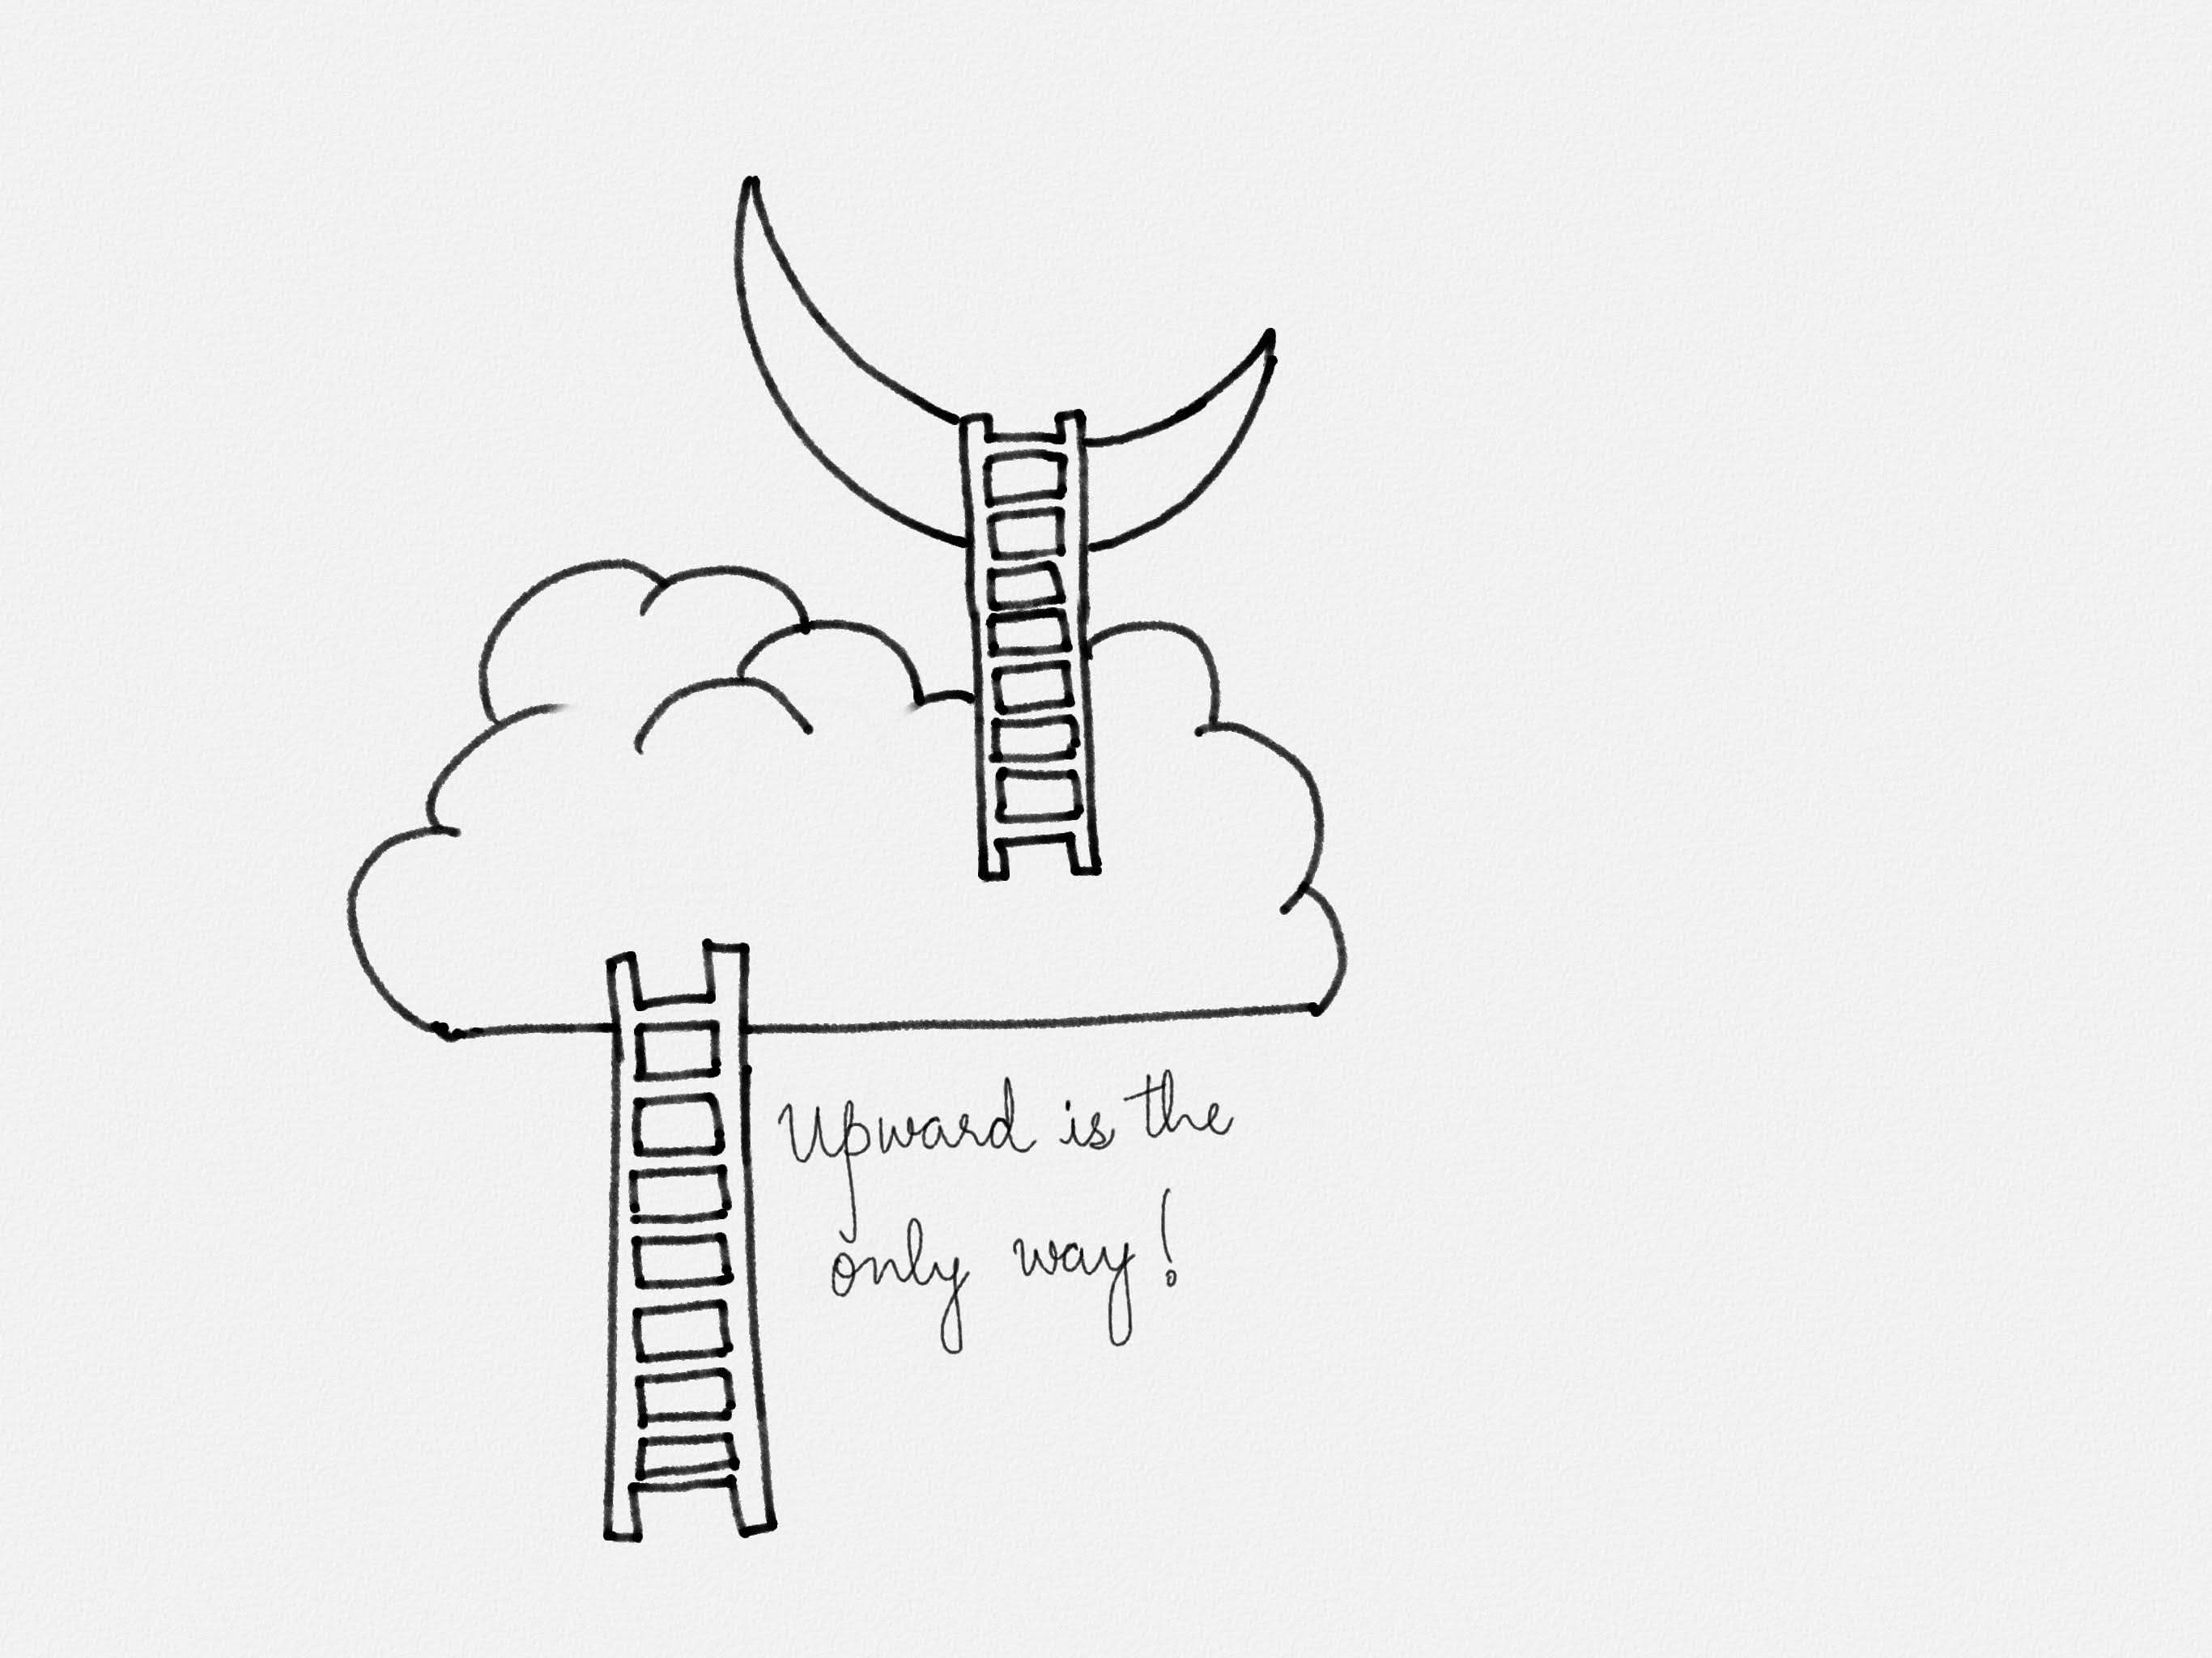 Upward is the
only way!